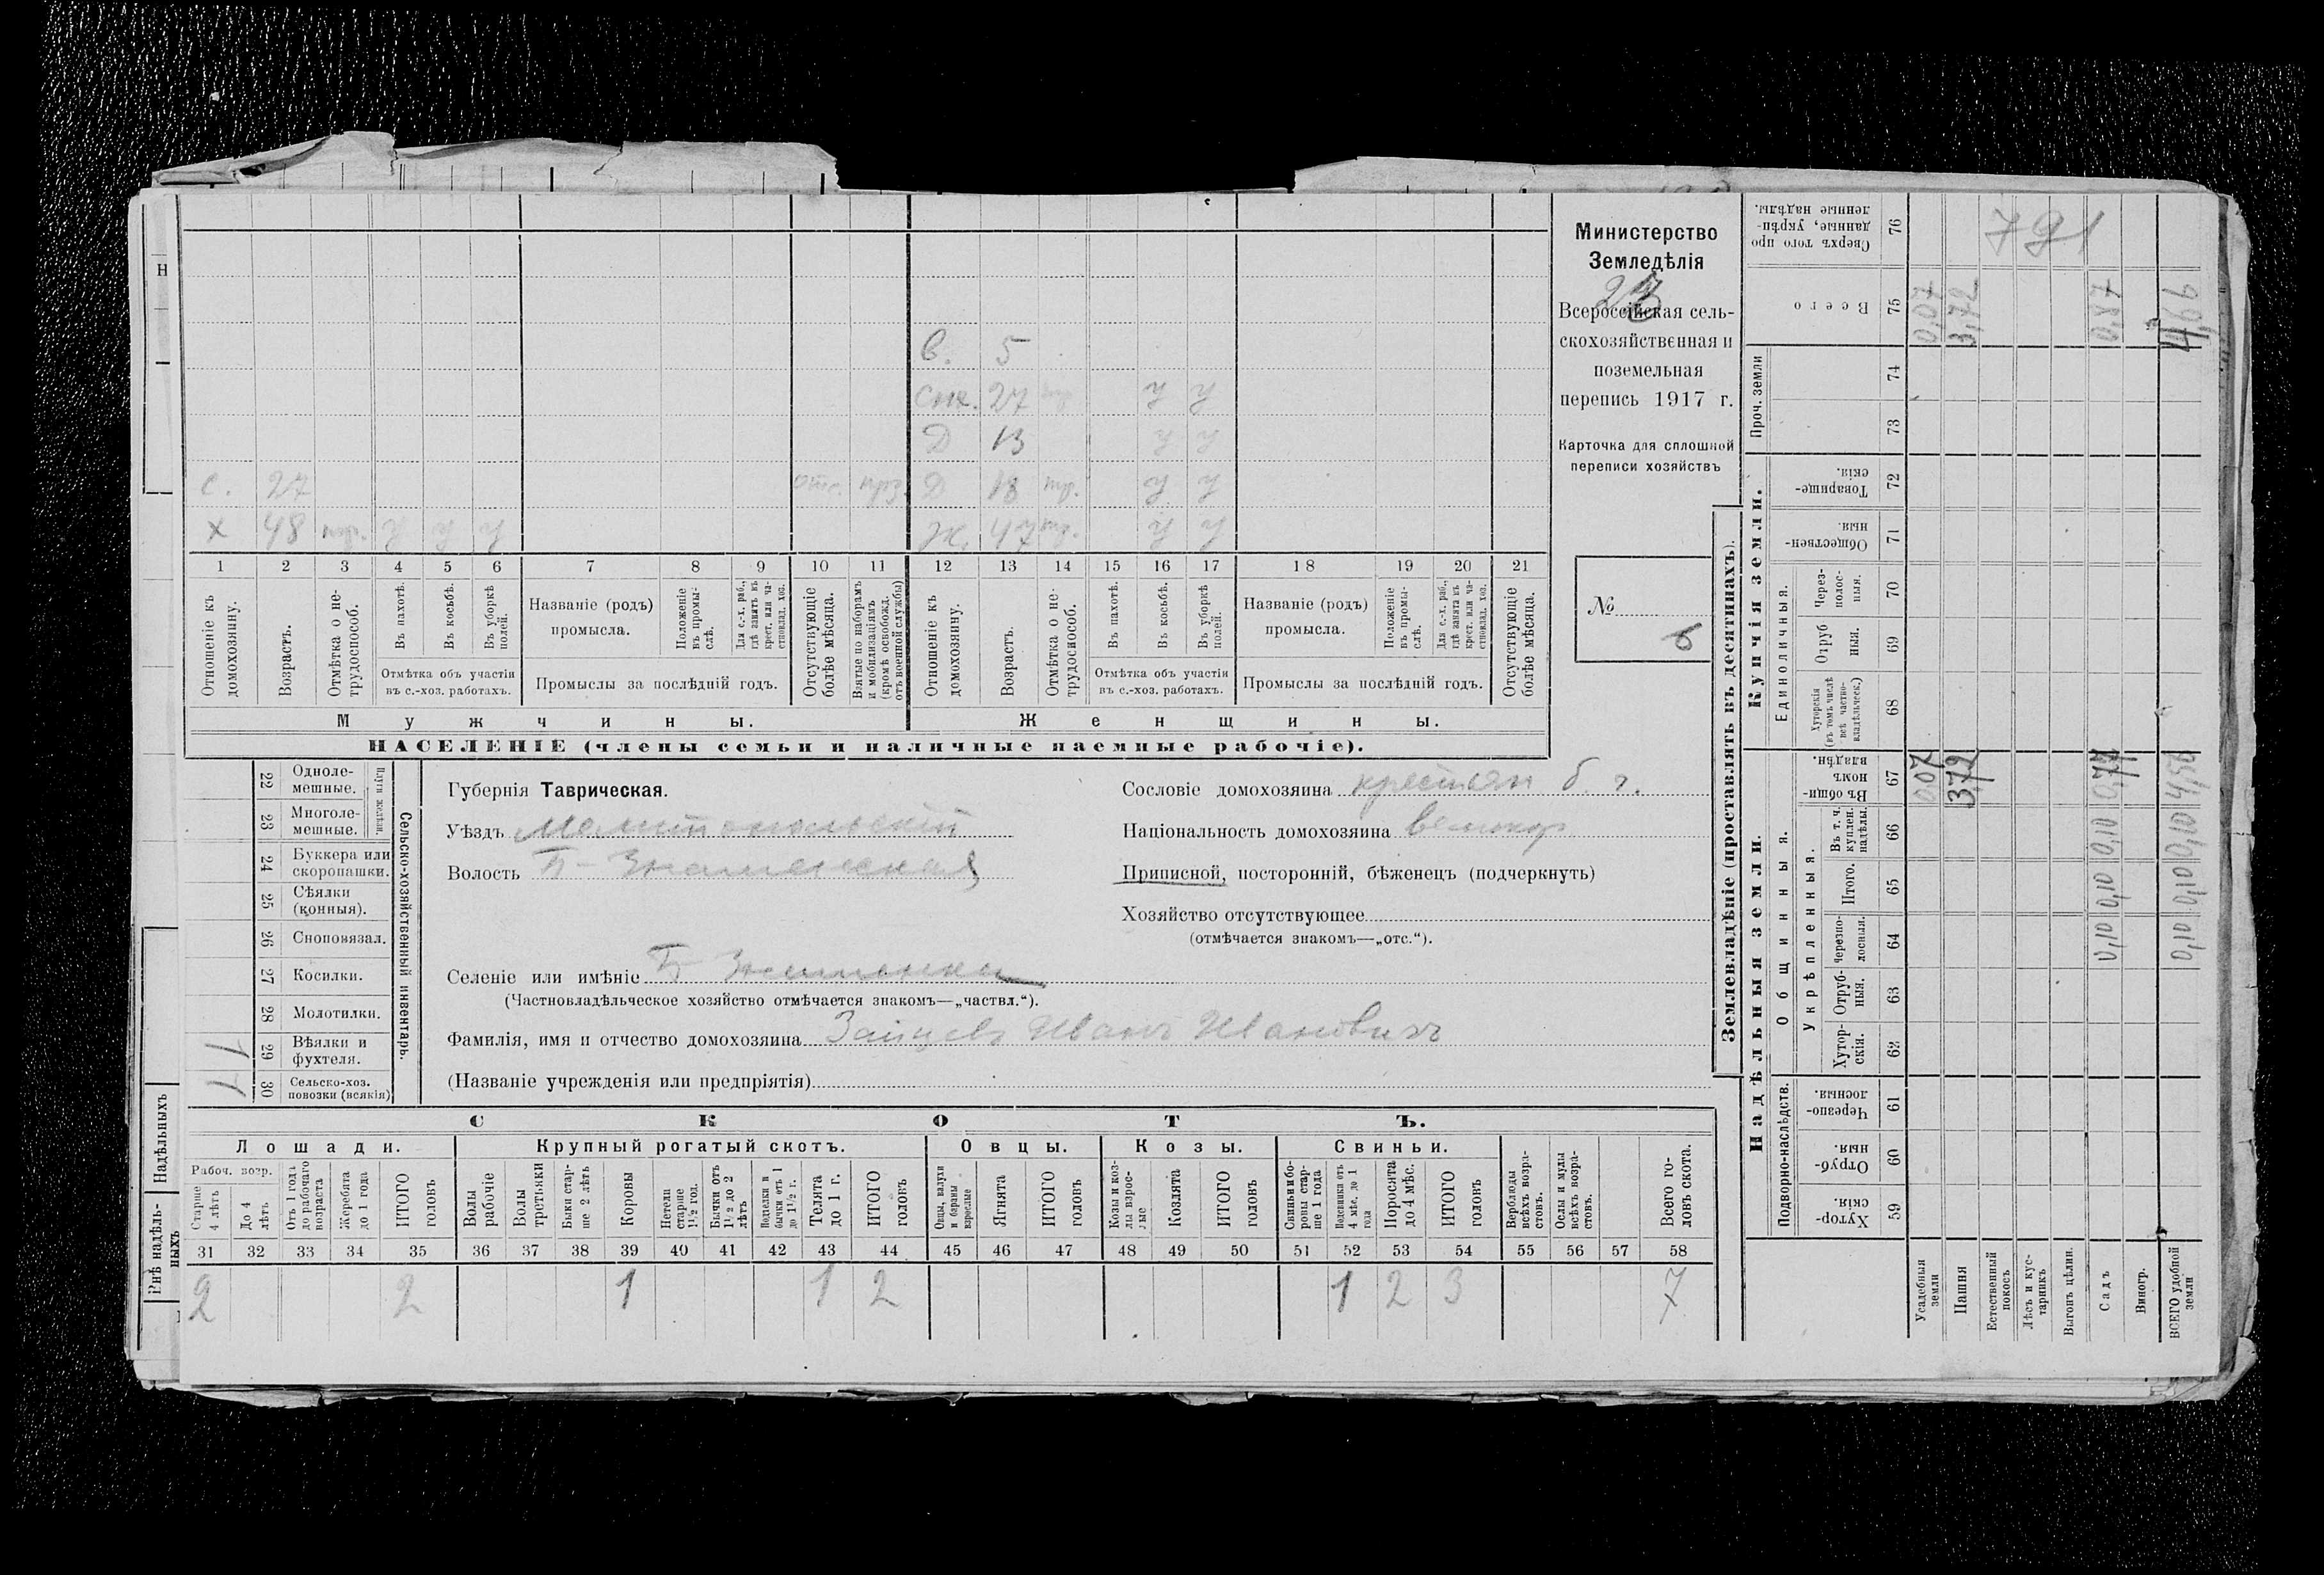 Министерство
Земледѣлія
23
Всероссійская сель-
скохозяйственная и
поземельная
перепись 1917 г.
Карточка для сплошной
переписи хозяйствъ
№
6
в. 5
снх. 27 тр. У У
Д 13 У У
с. 27 отс. прз. Д 18 тр. У У
х 48 тр. У У У Ж. 47 тр. У У
1 2 3 4 5 6 7 8 9 10 11 12 13 14 15 16 17 18 19 20 21
Отношеніе къ домохозяину.
Возрастъ.
Отмѣтка о не-трудоспособ.
Въ пахотѣ.
Въ косьбѣ.
Въ уборкѣ полей.
Отмѣтка объ участіи
въ с.-хоз. работахъ.
Названіе (родъ)
промысла.
Положеніе въ промы-слѣ.
Для с.-х. раб., гдѣ занятъ въ крест. или ча-стновлад. хоз.
Промыслы за послѣдній годъ.
Отсутствующіе болѣе мѣсяца.
Взятые по наборамъ и мобилизаціямъ (кромѣ освобожд. отъ военной службы)
Отношеніе къ домохозяину.
Возрастъ.
Отмѣтка о не-трудоспособ.
Въ пахотѣ.
Въ косьбѣ.
Въ уборкѣ полей.
Отмѣтка объ участіи
въ с.-хоз. работахъ.
Названіе (родъ)
промысла.
Положеніе въ промы-слѣ.
Для с.-х. раб., гдѣ занята въ крест. или ча-стновлад. хоз.
Промыслы за послѣдній годъ.
Отсутствующіе болѣе мѣсяца.
Мужчины.
Женщины.
НАСЕЛЕНІЕ (члены семьи и наличные наемные рабочіе).
22 Одноле-мешные.
23 Многоле-мешные.
Плуги желѣзн.
24 Буккера или скоропашки.
25 Сѣялки (конныя).
26 Сноповязал.
27 Косилки.
28 Молотилки.
1 29 Вѣялки и фухтеля.
1 30 Сельско-хоз. повозки (всякія)
Сельско-хозяйственный инвентарь.
Губернія Таврическая.
Уѣздъ Мелитопольскій
Волость Б-Знаменская
Сословіе домохозяина крестьян б. г.
Національность домохозяина великор
Приписной, посторонній, бѣженецъ (подчеркнуть)
Хозяйство отсутствующее
(отмѣчается знакомъ—„отс.“).
Селеніе или имѣніе Б Знаменка
(Частновладѣльческое хозяйство отмѣчается знакомъ—„частвл.“).
Фамилія, имя и отчество домохозяина Зайцевъ Иванъ Ивановичъ
(Названіе учрежденія или предпріятія)
СКОТЪ.
Лошади.
Крупный рогатый скотъ.
Овцы.
Козы.
Свиньи.
Рабоч. возр.
Старше 4 лѣтъ
До 4 лѣтъ
Отъ 1 года до рабочаго возраста
Жеребята до 1 года
ИТОГО головъ
Волы рабочіе
Волы третьяки
Быки стар-ше 2 лѣтъ
Коровы
Нетели старше 1½ год.
Бычки отъ 1½ до 2 лѣтъ
Подтелки и бычки отъ 1 до 1½ г.
Телята до 1 г.
ИТОГО головъ
Овцы, валухи и бараны взрослые
Ягнята
ИТОГО головъ
Козы и коз-лы взрос-лые
Козлята
ИТОГО головъ
Свиньи и бо-ровы стар-ше 1 года
Подсвинки отъ 4 мѣс. до 1 года
Поросята до 4 мѣс.
ИТОГО головъ
Верблюды всѣхъ возра-стовъ.
Ослы и мулы всѣхъ возра-стовъ.
Всего го-ловъ скота.
31 32 33 34 35 36 37 38 39 40 41 42 43 44 45 46 47 48 49 50 51 52 53 54 55 56 57 58
2 2 1 1 2 1 2 3 7
Землевладѣніе (проставлять въ десятинахъ).
Надѣльныя земли.
Купчія земли.
Проч. земли
Подворно-наслѣдств.
Общинныя.
Укрѣпленныя.
Единоличныя.
59 Хутор-скія.
60 Отруб-ныя.
61 Черезпо-лосныя.
62 Хутор-скія.
63 Отруб-ныя.
64 Черезпо-лосныя.
65 Итого.
66 Въ т. ч. куплен. надѣлы.
67 Въ общин-номъ владѣн.
68 Хуторскія (въ томъ числѣ всѣ частно-владѣльческ.)
69 Отруб ныя.
70 Через-полос-ныя.
71 Обществен-ныя.
72 Товарище-скія.
73
74
75 Всего
76 Сверхъ того про-данные, укрѣп-ленные надѣлы.
Усадебныя земли 0,07 0,07
Пашня 3,72 3,72
Естественный покосъ
Лѣсъ и кус-тарникъ
Выгонъ цѣлин.
Садъ 0,10 0,10 0,10 0,77 0,87
Виногр.
ВСЕГО удобной земли 0,10 0,10 0,10 4,56 4,66
791
Надѣльныхъ
Внѣ надѣль-ныхъ
Н